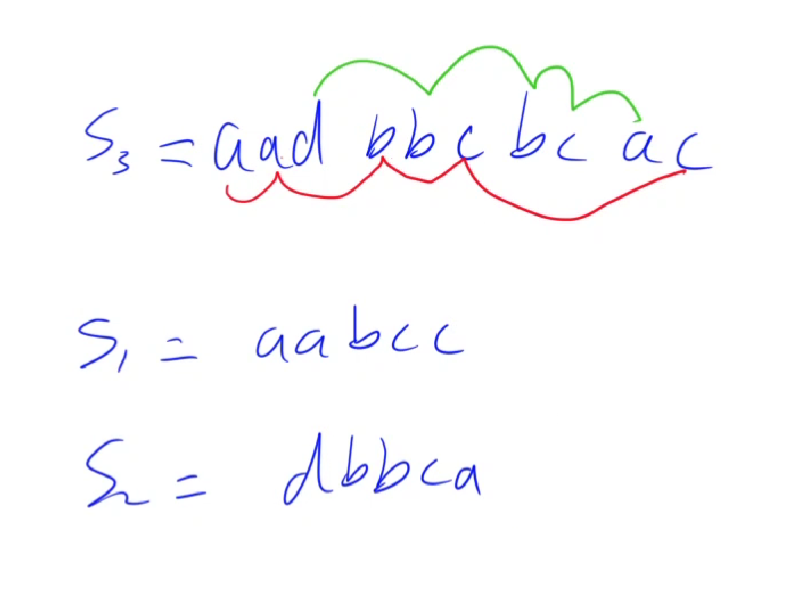 S₃ = aad bbc bc ac
S₁ = aabcc
S₂ = dbbca